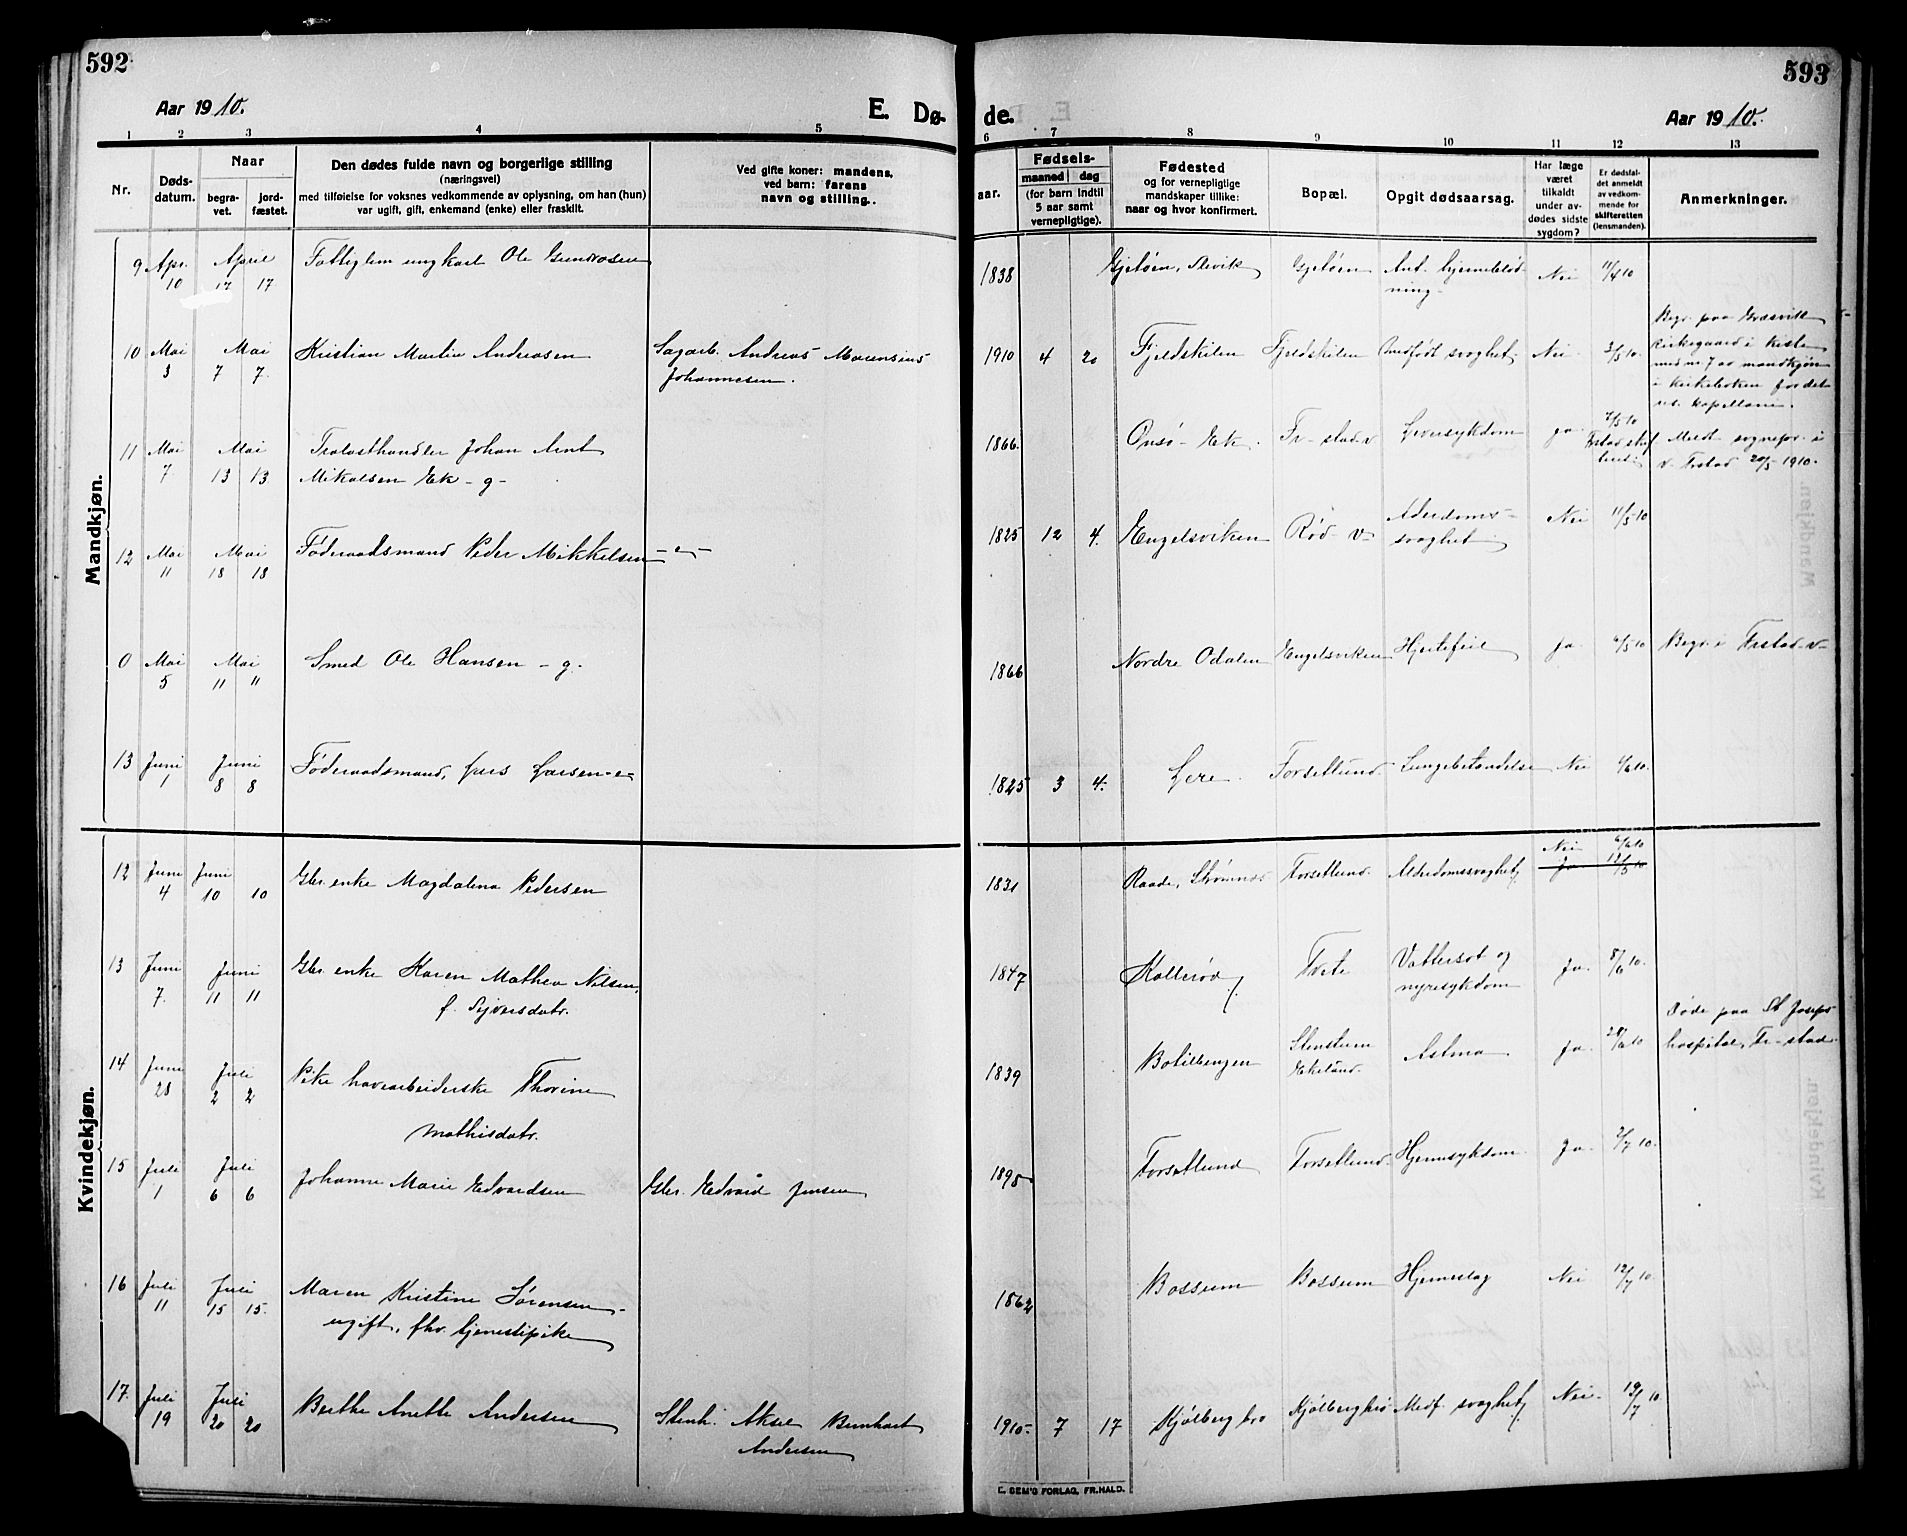 592
593
Aar 1910.
E. Dø-
de.
Aar 1910.
1 2 3 4 5
6 7 8 9 10 11 12 13
Nr.
Døds-
datum.
Naar
begra-
vet.
jord-
fæstet.
Den dødes fulde navn og borgerlige stilling
(næringsvei)
med tilføielse for voksnes vedkommende av oplysning, om han (hun)
var ugift, gift, enkemand (enke) eller fraskilt.
Ved gifte koner: mandens,
ved barn: farens
navn og stilling.
Fødsels-
aar.
maaned dag
(for barn indtil
5 aar samt
vernepligtige).
Fødested
og for vernepligtige
mandskaper tillike:
naar og hvor konfirmert.
Bopæl.
Opgit dødsaarsag.
Har læge
været
tilkaldt
under av-
dødes sidste
sygdom?
Er dødsfal-
det anmeldt
av vedkom-
mende for
skifteretten
(lensmanden).
Anmerkninger.
Mandkjøn.
9 Apr. April Fattiglem ungkarl Ole Gundrosen 1838 Gjetøen, Slevik Gjetøen Ant. hjerneblød- Nei 11/4 10
10 17 17 ning
10 Mai Mai Kristian Martin Andreasen Sagarb. Andreas Marensius 1910 4 20 Fjeldskilen Fjeldskilen Medfødt svaghet Nei 3/5 10. Begr. paa Græsvik
3 7 7. Johannesen. kirkegaard i kiste
med nr. 7 av mandkjøn
i kirkeboken for det
kapellani.
11 Mai Mai Trælasthandler Johan Arnt 1866 Onsø - Ek. Fr-stad v Leversykdom ja 7/5 10 Medt. sognepr. i
7. 13 13. Mikalsen Ek - g - v. Frstad 20/5 1910.
12 Mai Mai Føderaadsmand Peder Mikkelsen - e - 1825 12 4. Engelsviken Rød v Alderdoms- Nei 11/5 10
11 18 18 svaghet
0 Mai Mai Smed Ole Hansen - g. 1866 Nordre Odalen Engelsviken Hjertefeil ja 6/5 10 Begr. i Frstad v
5 11 11
13 Juni Juni Føderaadsmand, Lars Larsen - e - 1825 3 4. Lere. Torsetlund Lungebetændelse Nei 4/6 10.
1 8 8
Kvindekjøn.
12 Juni Juni Gbr. enke Magdalena Pedersen 1831 Raade, Strømnes Torsetlund. Alderdomssvaghet Nei 6/6 10
4 10 10 Ja 12/5 10
13 Juni Juni Gbr. enke Karen Mathea Nilsen, 1847 Kallerød Tvete Vattersot og Ja. 8/6 10.
7. 11 11 f. Sjversdatr. nyresykdom
14 Juni Juli Pike havearbeiderske Thorine 1839 Botilbengen Stenstrum Astma Ja. 28/6 10 Døde paa St Josephs
28 2 2 Mathisdatr. Ekelund. hospital, Fr-stad
15 Juli Juli Johanne Marie Edvardsen Gbr. Edvard Jensen 1898 Torsetlund Torsetlund. Hjernesykdom Ja. 2/7 10.
1 6 6
16 Juli Juli Maren Kristine Sørensen 1862 Bossum Bossum Hjerneslag Nei 12/7 10.
11 15 15. ugift, fhv. tjenestepike
17. Juli Juli Berthe Anette Andersen Stenh. Aksel Bernhart 1910 7 17 Kjølbergbro Kjølbergbro Medf. svaghet Nei. 19/7 10
19 20 20 Andersen
E. SEM'S FORLAG, FR.HALD.